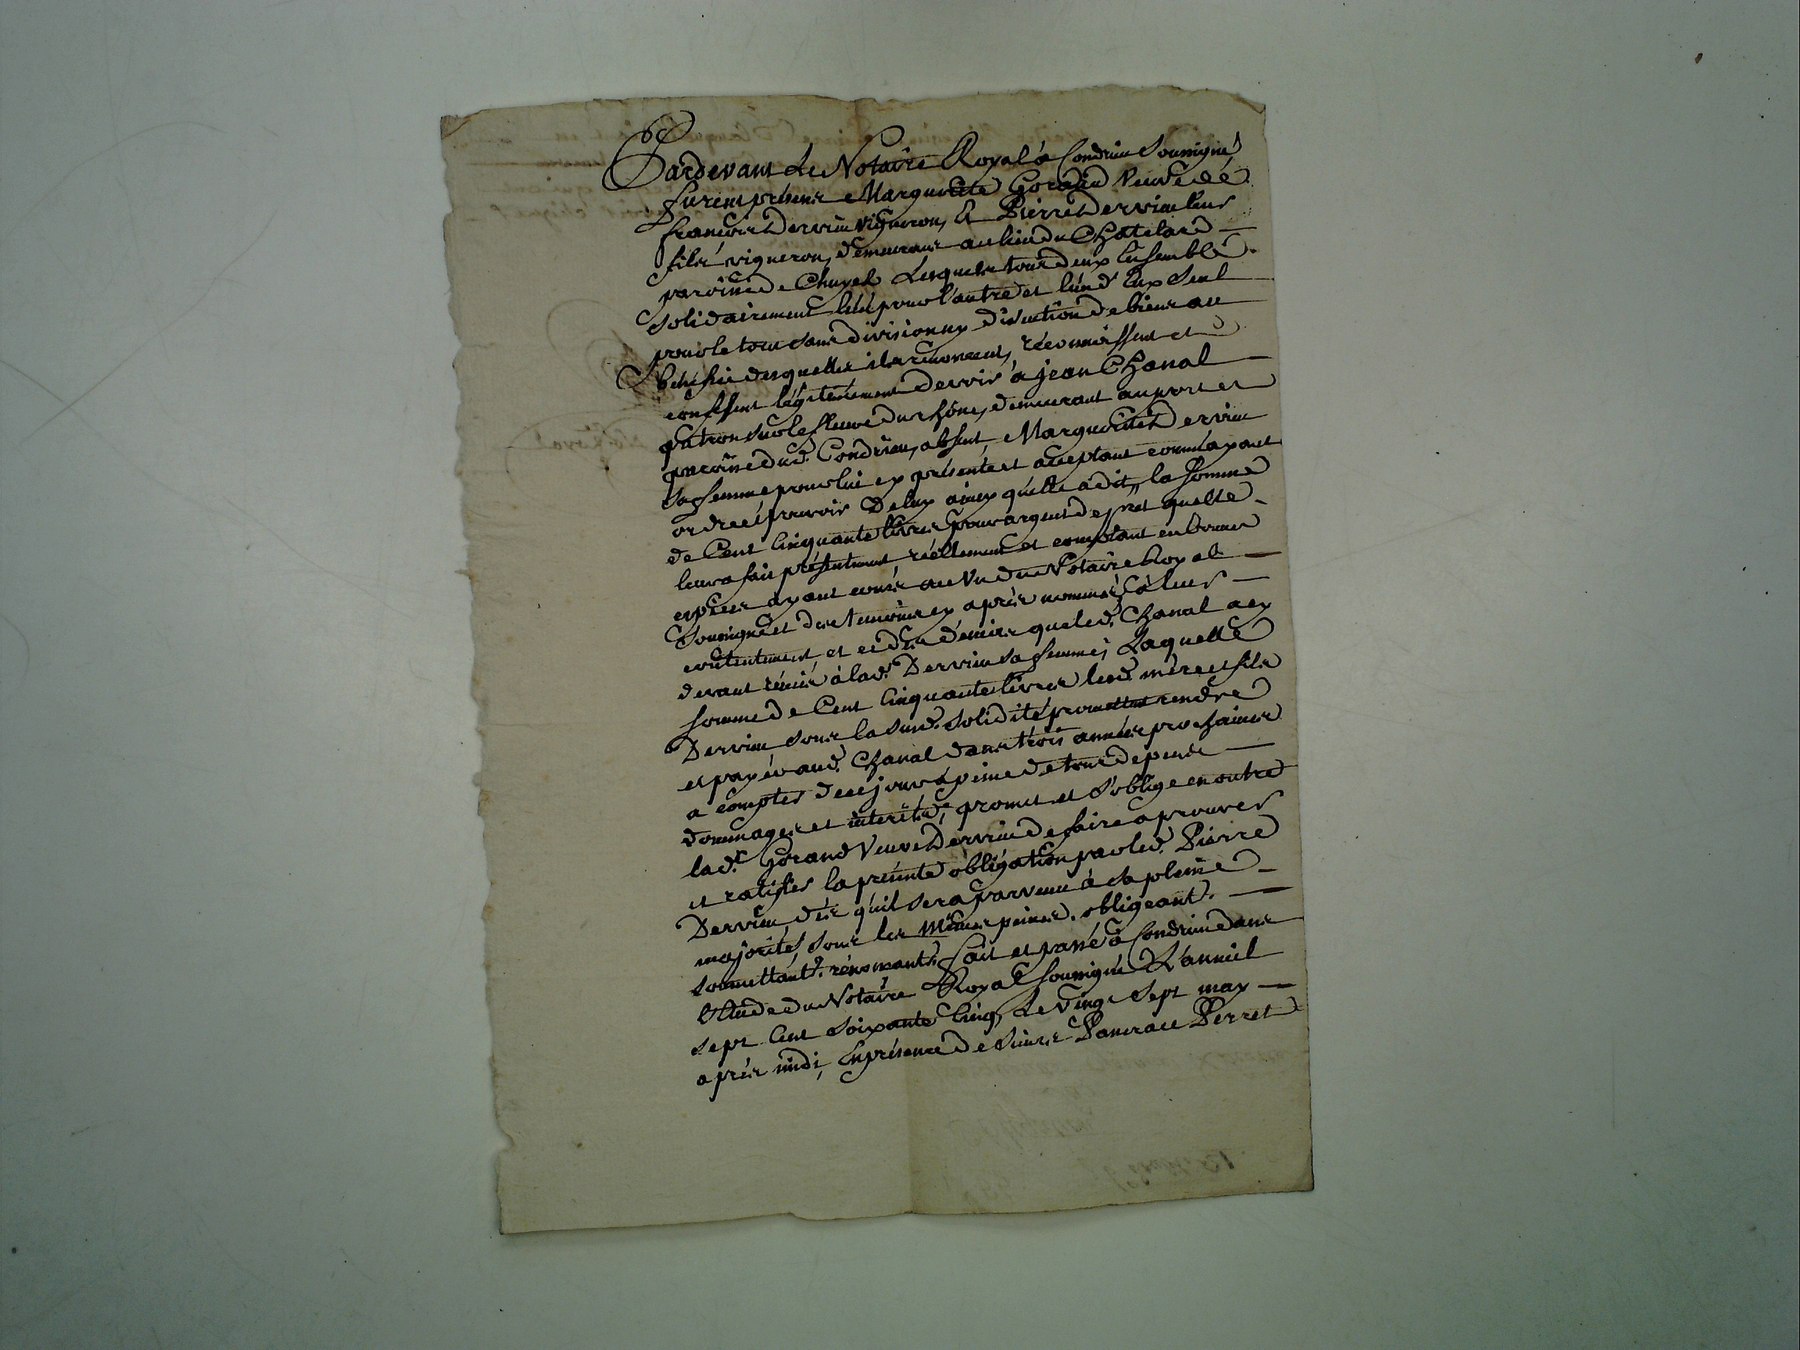 Pardevant Le Notaire Royal à Condrieu Soussigné
furent présens Marguerite Gorand Veuve de
françois Dervieu vigneron, & Pierre Dervieu leur
fils vigneron, demeurans au lieu du Chatelard
paroisse de Chuyel Lesquels tous deux Ensemble
solidairement l'un pour l'autre et l'un d'Eux Seul
pour le tout sans division ny discution de biens au
bénéfice desquelles ils renoncent, reconnoissent et
confessent légitimement devoir à jean Chanal
patron sur le fleuve du rhône, demeurant au port et
paroisse dud. Condrieu, absent, Marguerite Dervieu
sa femme pour lui cy présente et acceptant comme ayant
ordre et pouvoir de lux ainsy qu'elle a dit, la somme
de Cent Cinquante livres pour argent de pret quelle
leur a fait présentement, réellement et comptant en bonnes
espèces ayant cours au Vu du Notaire Royal
soussigné et des temoins cy après nommés, à leur
contentement, et ce des deniers que led. Chanal a cy
devant remis à lad. Dervieu sa femme; Laquelle
somme de Cent Cinquante livres lesd. mère et fils
Dervieu sous la susd. solidité promettent rendre
et payer aud. Chanal dans trois années prochaines
a compter de ce jour à peine de tous depens
dommages et interêts, promet et s'oblige en outre
lad. Gorand Veuve Dervieu de faire aprouver
et ratifier la présente obligation par led. Pierre
Dervieu, dès qu'il sera parvenu à sa pleine
majorité, sous les mêmes peines. obligeant.
soumettant. renonçant. fait et passé à Condrieu dans
l'Etude du Notaire Royal soussigné L'an mil
sept Cent soixante Cinq, Le Vingt Sept may
après midi, En présence de Sieurs Pancrace Perret